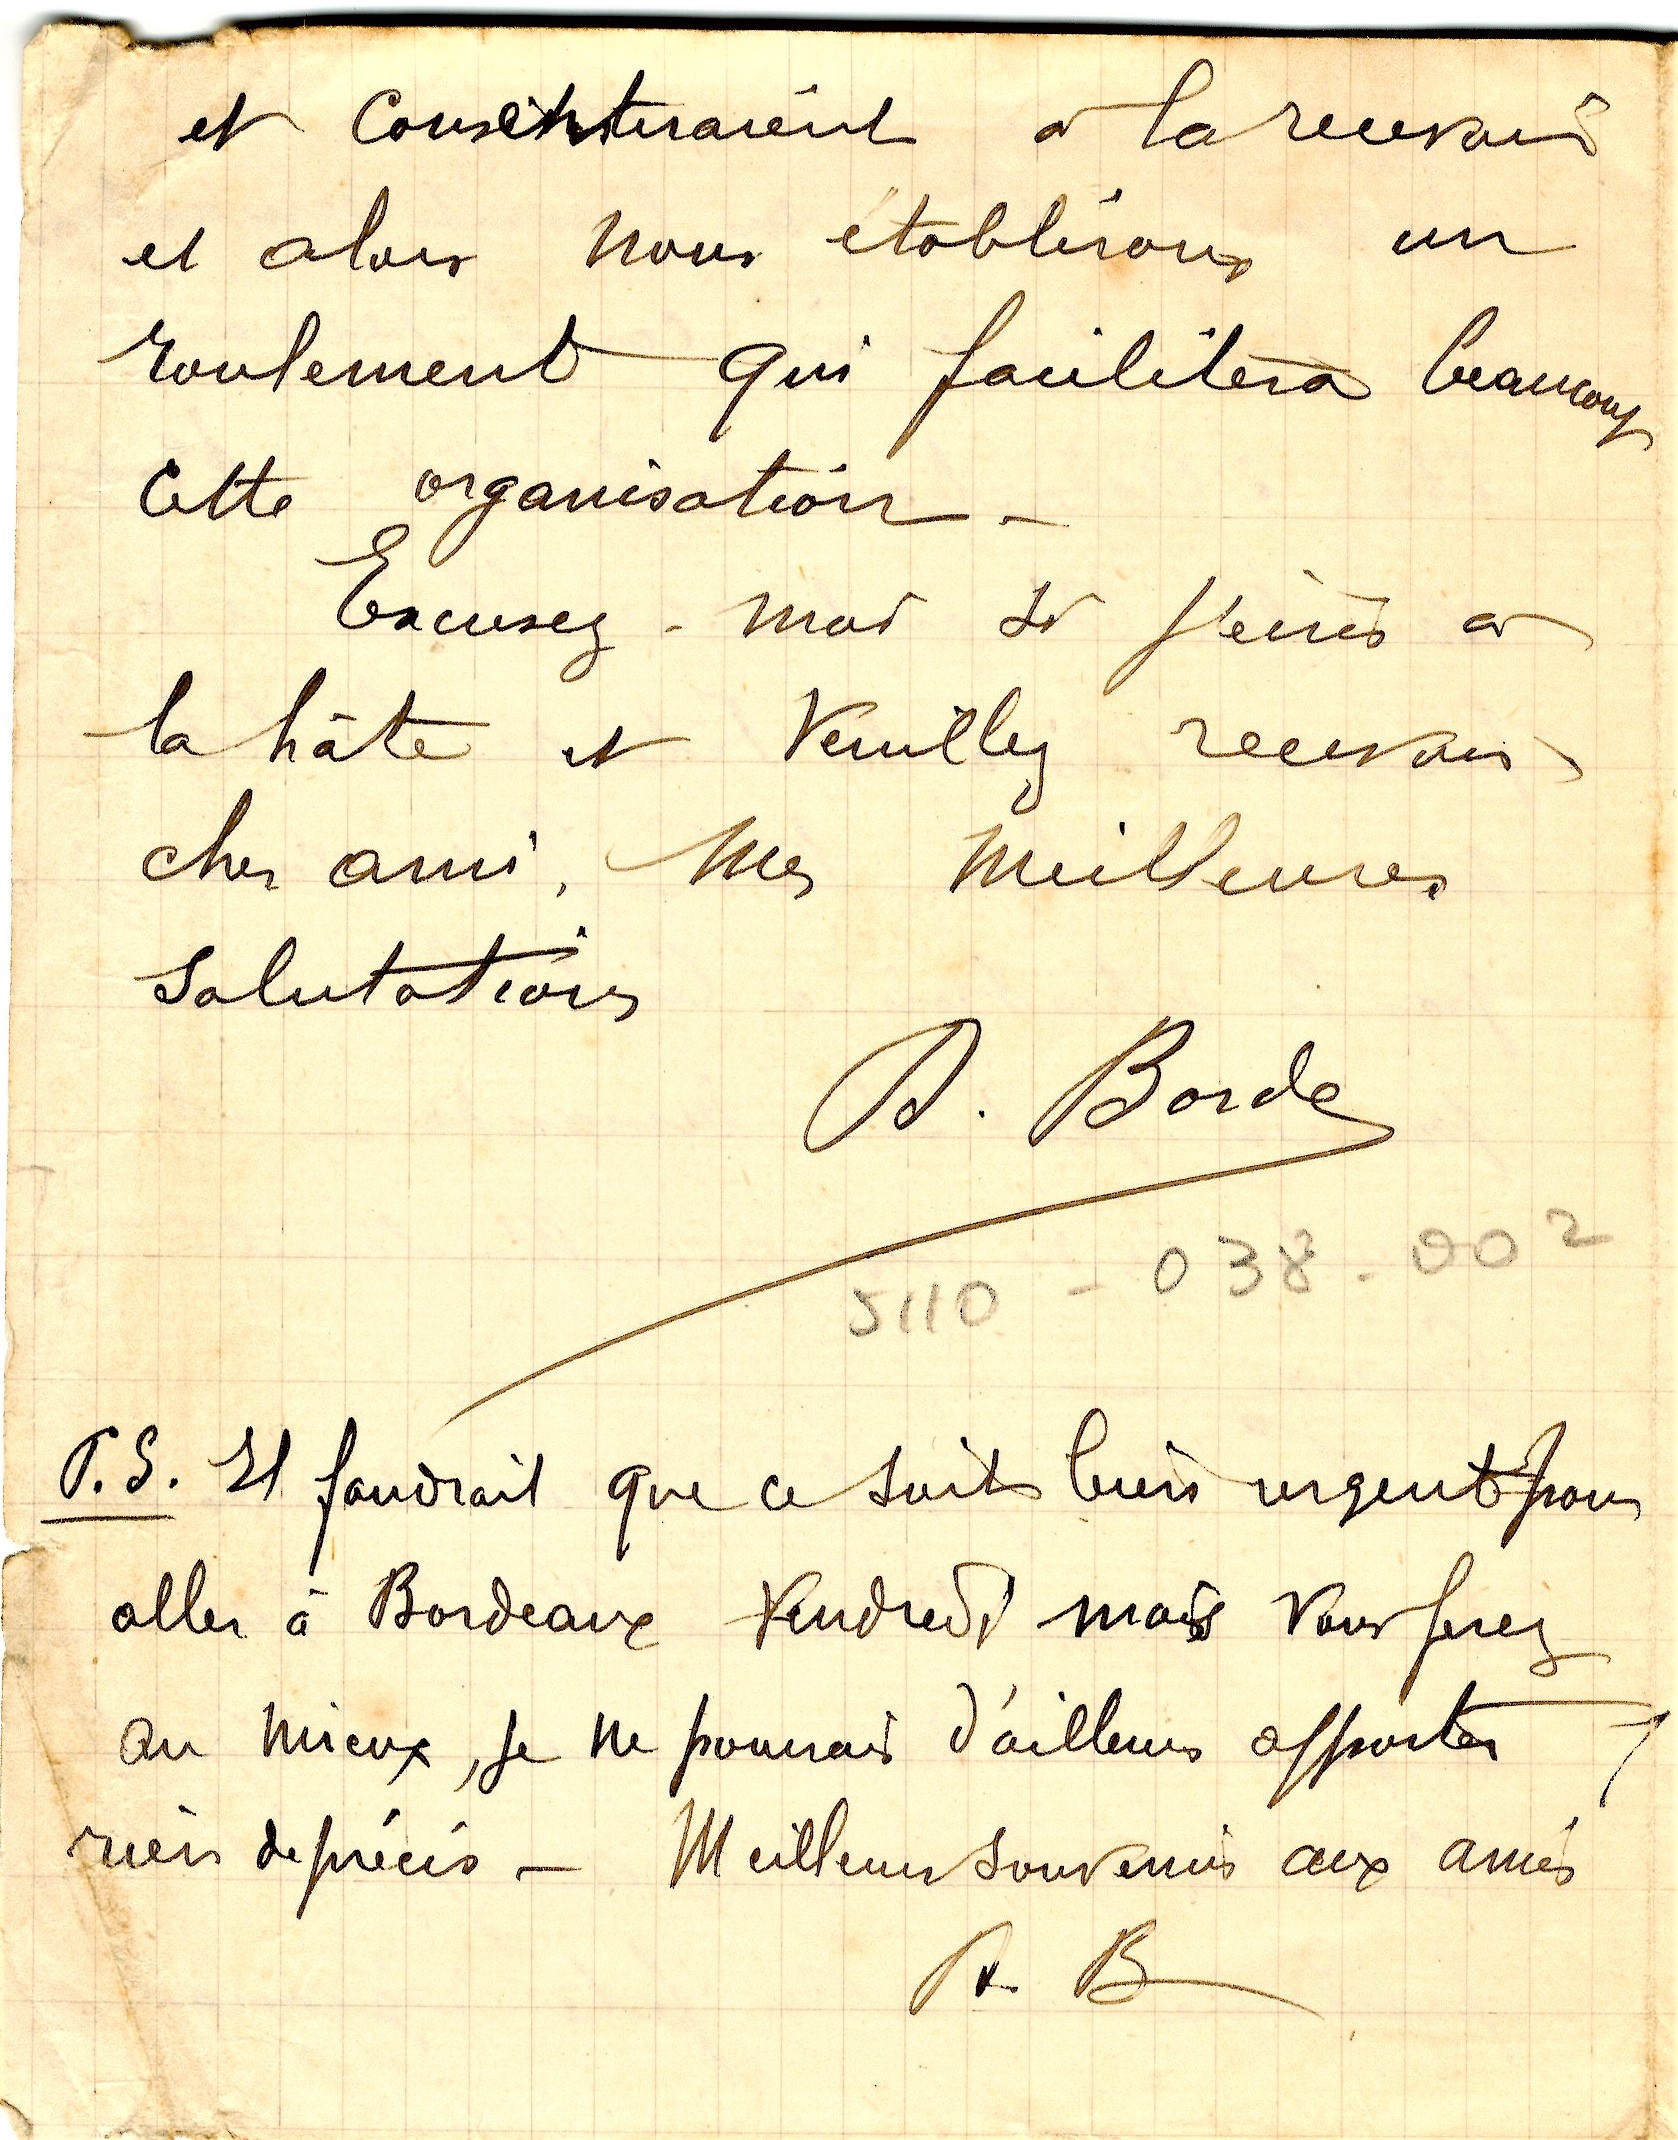 et consentiraient à la recevoir
et alors nous établirons un
roulement qui facilitera beaucoup
cette organisation -
Excusez-moi si j'écris à
la hâte et veuillez recevoir
cher ami, mes meilleures
salutations
A. Borde
5110 - 038 - 002
P.S. Il faudrait que ce soit bien urgent pour
aller à Bordeaux Vendredi mais vous ferez
au mieux, je ne pourrais d'ailleurs apporter
rien de précis - Meilleurs souvenirs aux amis
A. B